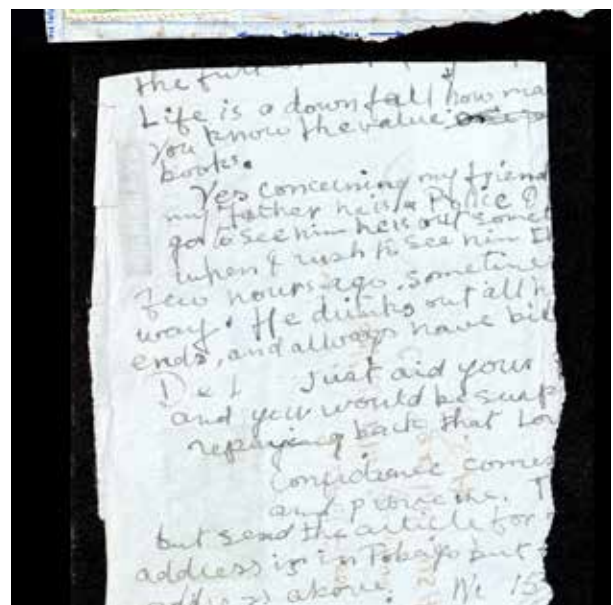 the fur
Life is a downfall how ma
You know the value
books.
Yes concerning my friend
my father he is a Police O
go to see him he is out somet
when I rush to see him I
few hours ago. sometime
way. He drinks out all h
ends, and allways have bil
Just aid your
and you would be surp
repaying back that Lo
Confidence comes
and prove me. T
but send the article for
address is in Tobago but
address above. No 153